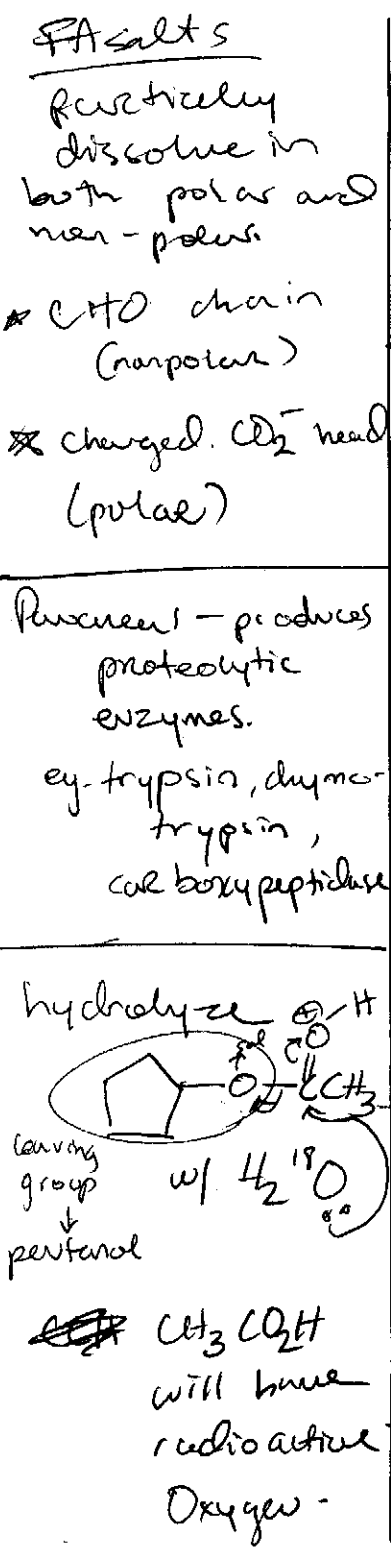 FA salts
partially
dissolve in
both polar and
non-polar.
* CHO chain
(nonpolar)
* charged. CO₂⁻ head
(polar)
Pancreas - produces
proteolytic
enzymes.
eg-trypsin, chymo-
trypsin,
carboxypeptidase
hydrolyze ⊕ H
O
O - C CH₃
leaving
group
w/ H₂ ¹⁸O
↓
pentanol
CH₃CO₂H
will have
radioactive
Oxygen -